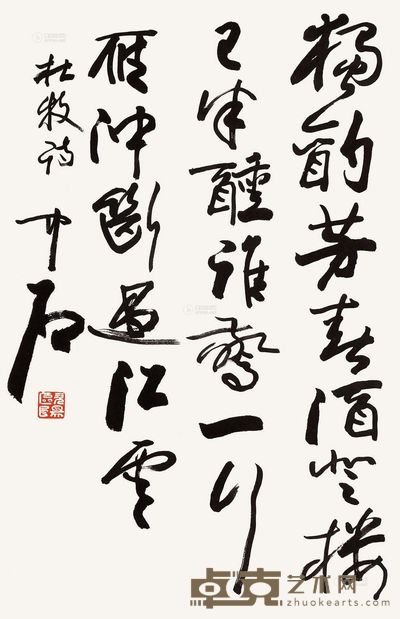 獨酌芳春酒登樓
已半醺誰驚一行
雁沖斷過江雲
杜牧詩 中石
卓克艺术网
zhuokearts.com